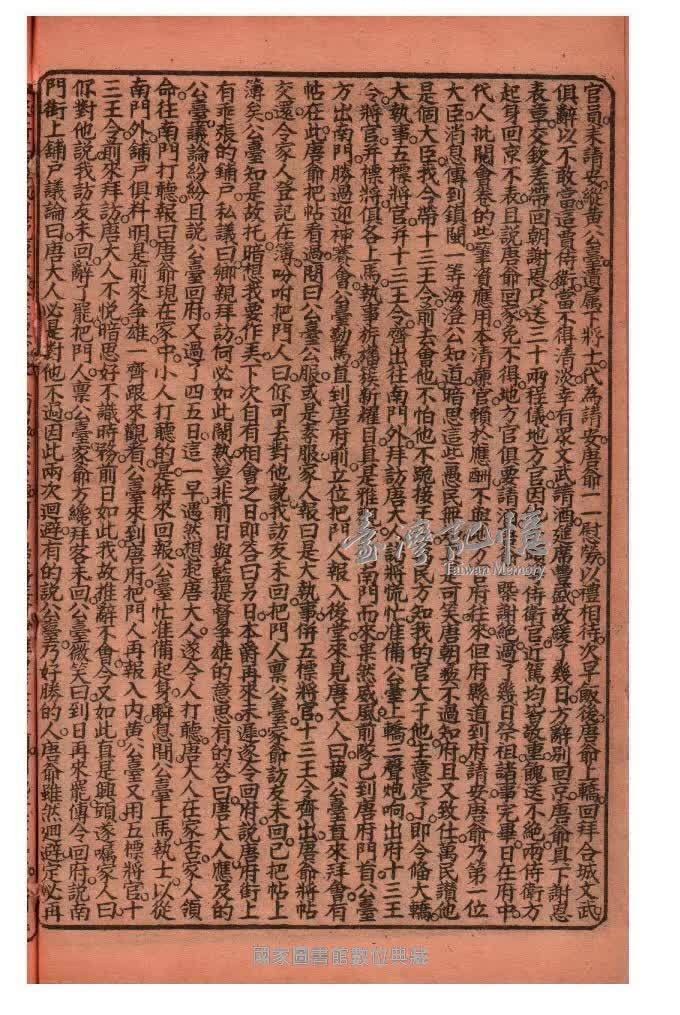 官員來請安縱黃公臺遺属下將士代為請安唐爺一一慰勞以禮相待次早飯後唐爺上轎回拜合城文武
俱辭以不敢當這賈侍衛當不得清淡幸有眾文武請酒筵席豐盛故緩了幾日方辭別回京唐爺具下謝恩
表章交欽差帶回朝謝恩只送三十兩程儀地方官因侍衛官近篤均皆故重餽送不絕兩侍衛方
起身回京不表且說唐爺回家免不得地方官俱要請酒槩謝絕過了幾日祭祖諸事完畢日在府中
代人批閱會卷的些筆資應用本清廉官賴於應酬不與方府往來但府縣道到府請安唐爺乃第一位
大臣消息傳到鎮閩一等海澄公知道暗思這些愚民無知是可笑唐朝彝不過知府且又致仕萬民讚他
是個大臣我今帶十三王令前去會他不怕他不跪接王令民方知我的官大于他主意定了即令偹大轎
大執事五標將官并十三王令齊出往南門外拜訪唐大人眾將慌忙准備公臺上轎三聲炮响出府十三王
令將官并標將俱各上馬執事新旛族新耀日真是雅觀南門而來果然威風前隊已到唐府門首公臺
方出南門勝過迎神賽會公臺勒馬直到唐府前立位把門人報入後堂來見唐大人曰黃公臺直來拜會有
帖在此唐爺把帖看過問曰公臺公服或是素服家人報曰是大執事併五標將官十三王令齊出唐爺將帖
交還令家人登記在簿吩咐把門人曰你可去對他說我訪友未回把門人禀公臺家爺訪友未回已把帖上
簿矣公臺知是故托暗想我要作丟下次自有相會之日即答曰另日本爵再來未遲遂令回府說唐府街上
有乖張的鋪户私議曰鄉親拜訪何必如此鬧熱莫非前日與藍提督爭雄的意思有的答曰唐大人應及的
公臺議論紛紛且說公臺回府又過了四五日這一早遇然想起唐大人遂令人打聽唐大人在家否家人領
命往南門打聽報曰唐爺現在家中小人打聽的是特來回報公臺忙准備起身瞬息間公臺上馬執士以從
南門外鋪户俱料明是前來爭雄一齊跟來觀看公臺來到唐府把門人再報入內黃公臺又用五標將官十
三王令前來拜訪唐大人不悦暗思好不識時務前日如此我故推辭不會今又如此直是興頭遂囑家人曰
你對他說我訪友未回辭了罷把門人禀公臺家爺方纔拜客未回公臺微笑曰到日再來罷傳令回府說南
門街上鋪户議論曰唐大人必是對他不過因此兩次迴避有的說公臺乃好勝的人唐爺雖然迴避定必再
臺灣記憶
Taiwan Memory
國家圖書館數位典藏